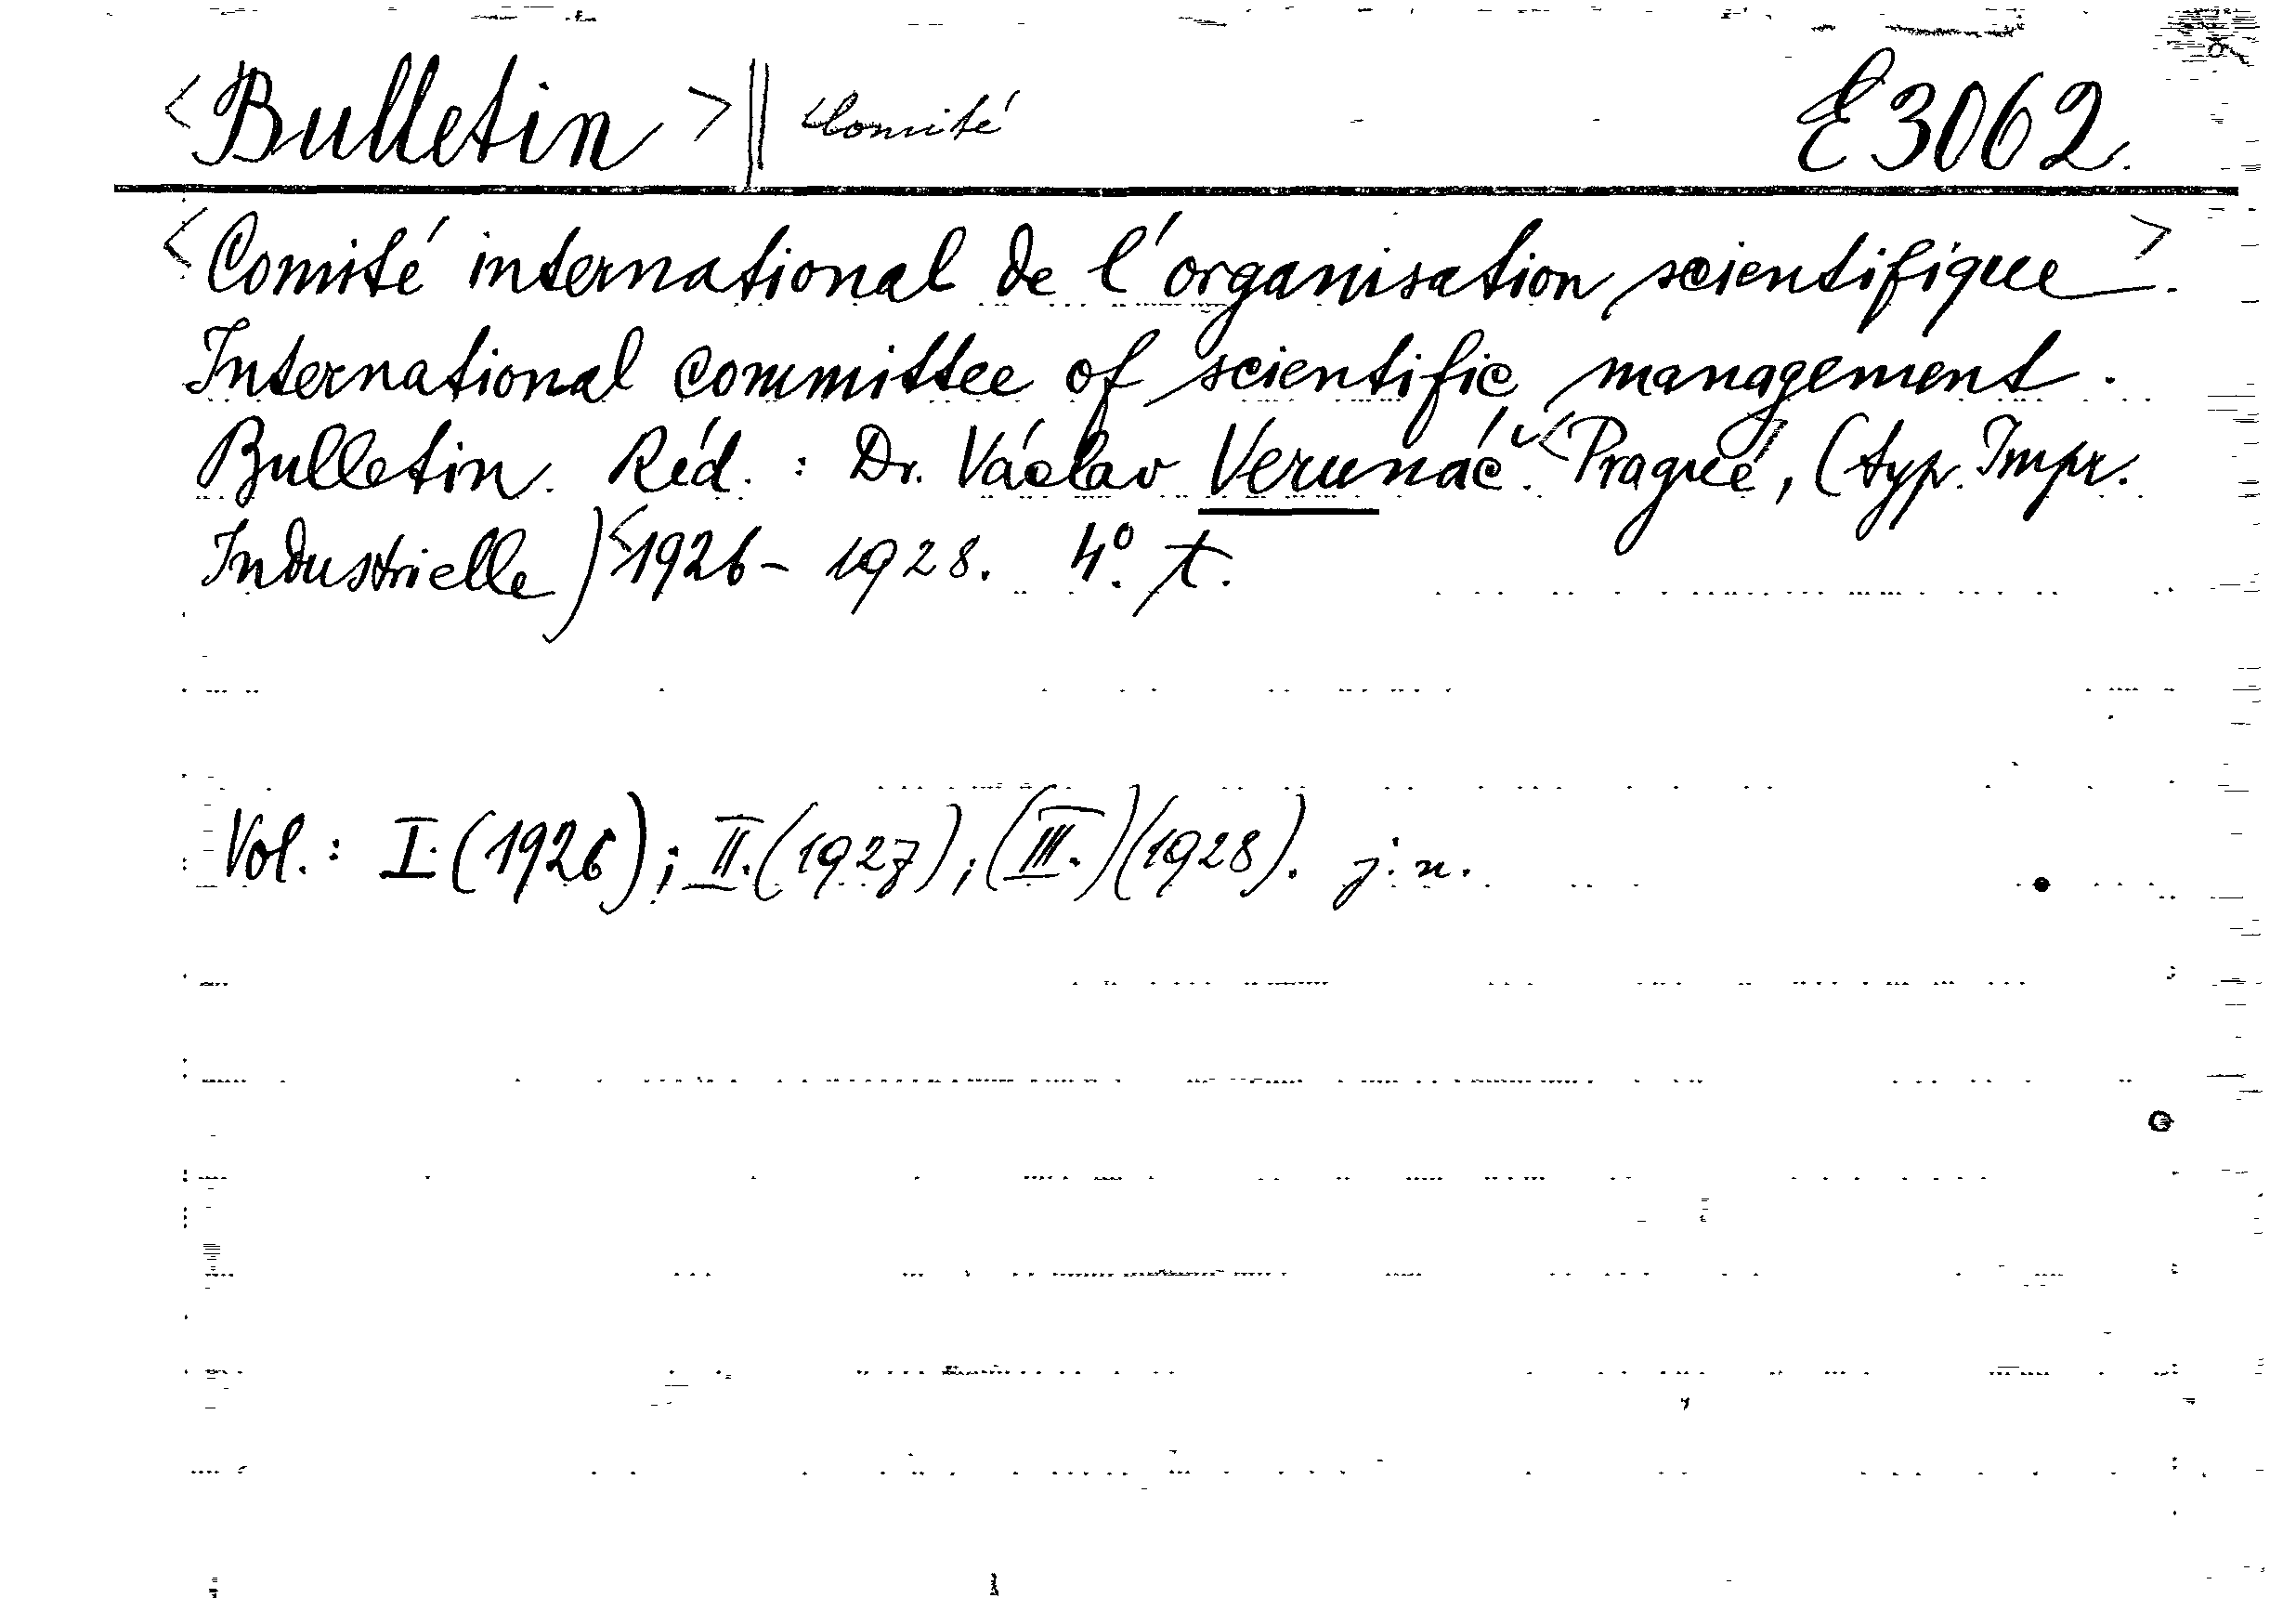 <Bulletin> || Comité E 3062.
<Comité international de l'organisation scientifique>.
International committee of scientific management.
Bulletin. Réd. : Dr. Václav Verunáč. <Prague, (typ. Impr.
Industrielle) <1926- 1928. 4º. t.
Vol. : I. (1926); II. (1927); (III.) (1928). j. n.